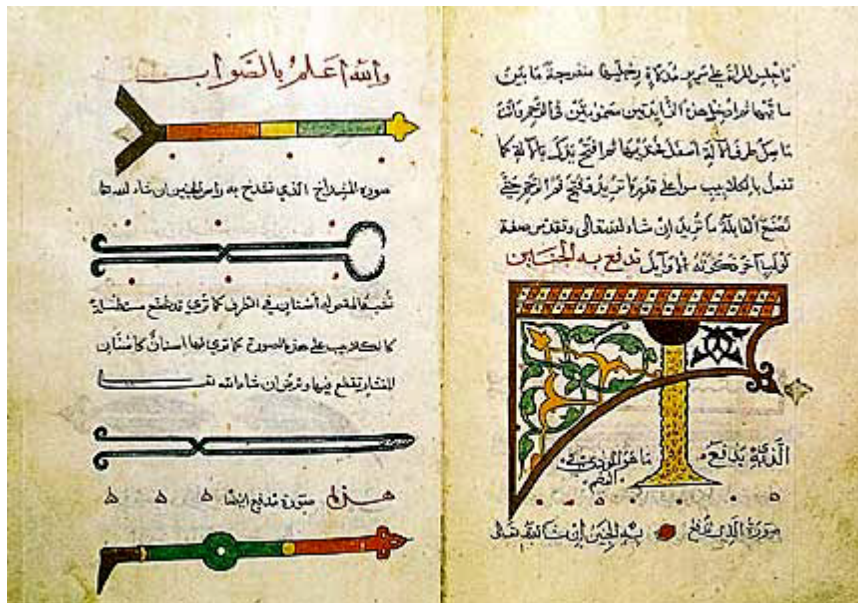 واجلس المراة على سرير مدلاة رجليها منفرجة ما بين
ساقيها ثم ادخل هذه الزايدتين في الرحم وانت
ماسك طرف الالة اسفل فخذيها ثم افتح يدك بالالة كما
تفعل بالكلاليب سوا على قدر ما تريد فتح فم الرحم حتى
تصنع القابلة ما تريد ان شاء الله تعالى صفة
لولب اخر ذكرته الاوايل تدفع به
يدفع ما هو
صورة الذي تدفع به الجنين ان شا الله تعالى
والله اعلم بالصواب
صورة المشداخ الذي تشدخ به راس الجنين ان شاء الله
اسنان في الطرف كما ترى قد تصنع مستطيلة
كالكلاليب على هذه الصورة كما ترى لها اسنان كاسنان
المنشار يقطع بها وترض ان شاء الله
هذه صورة مدفع ايضا